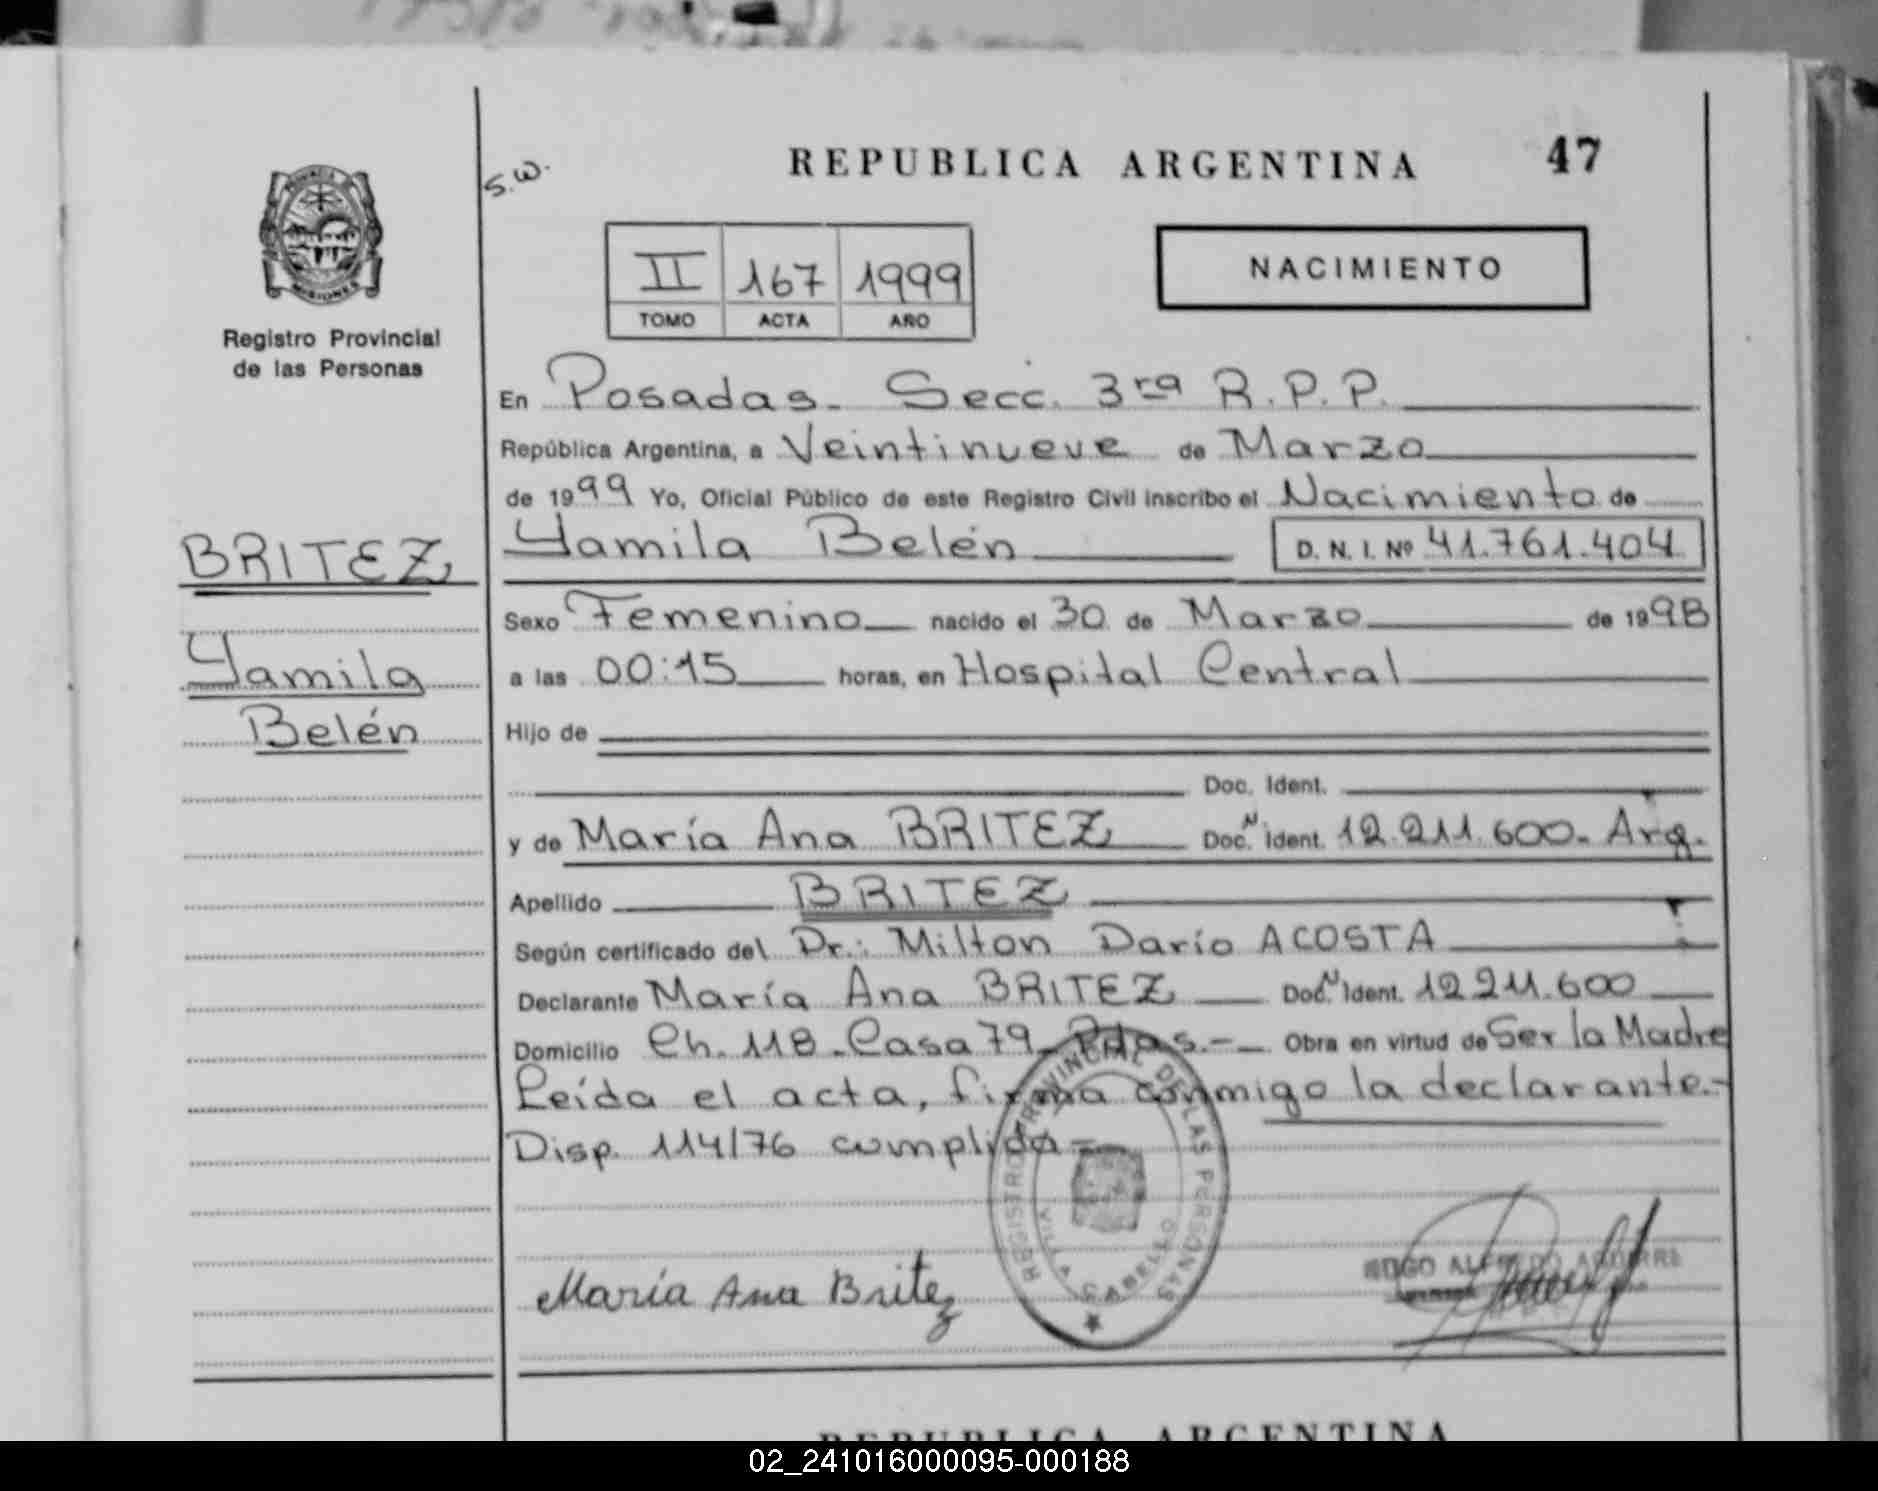 REPUBLICA ARGENTINA 47
S.W.
MISIONES
Registro Provincial
de las Personas
II 167 1999
TOMO ACTA AÑO
NACIMIENTO
En Posadas. Secc. 3ra R.P.P.
República Argentina, a Veintinueve de Marzo
de 1999 Yo, Oficial Público de este Registro Civil inscribo el Nacimiento de
BRITEZ
Yamila Belén D. N. I. Nº 41.761.404
Sexo Femenino nacido el 30 de Marzo de 1998
Yamila
a las 00:15 horas, en Hospital Central
Belén
Hijo de
Doc. Ident.
y de María Ana BRITEZ Doc. N Ident. 12.211.600. Arg.
Apellido BRITEZ
Según certificado del Dr.: Milton Darío ACOSTA
Declarante María Ana BRITEZ Doc. N Ident. 12.211.600
Domicilio Ch. 118. Casa 79 Pdas.- Obra en virtud de Ser la Madre
Leída el acta, firma conmigo la declarante.-
Disp. 114/76 cumplida-
REGISTRO PROVINCIAL DE LAS PERSONAS
VILLA CABELLO
María Ana Britez
REPUBLICA ARGENTINA
02_241016000095-000188